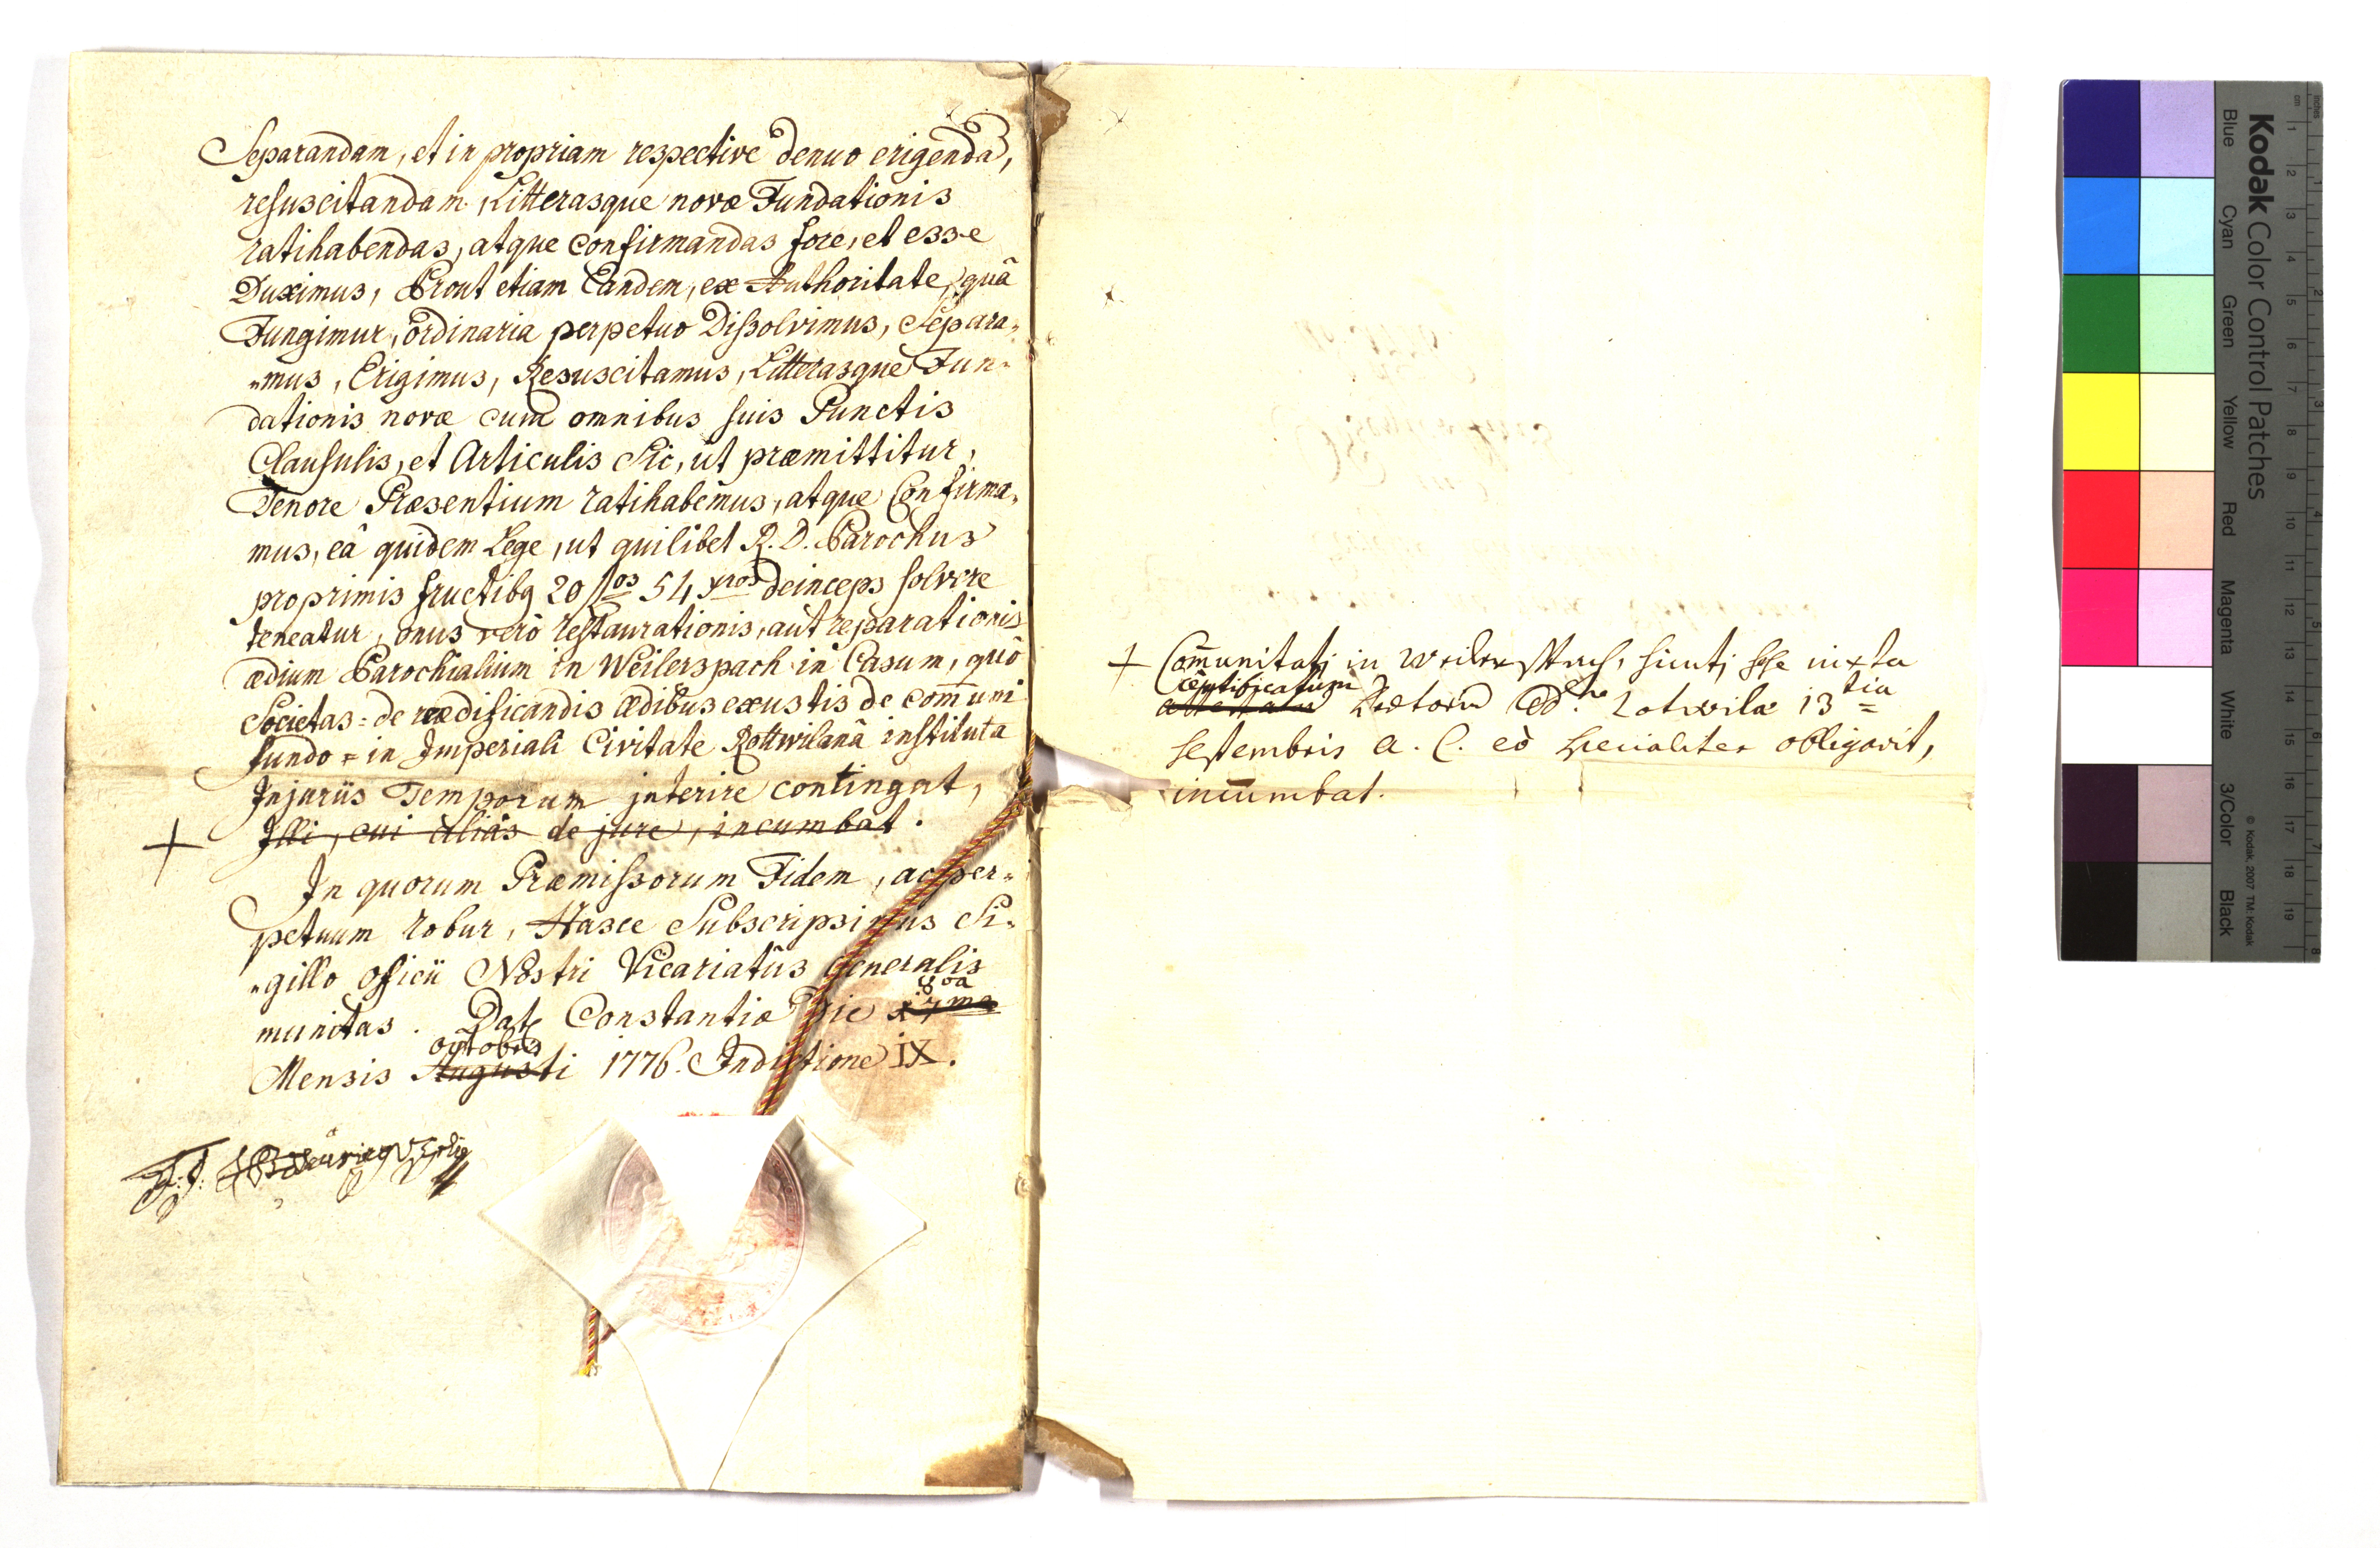 Separandam, et in propriam respective denuo erigendã,
resuscitandam, Litterasque novæ Fundationis
ratihabendas, atque confirmandas fore, et esse
Duximus, Prout etiam Eandem, ex Authoritate, quâ
Fungimur, ordinaria perpetuo Dissolvimus, Separa„
„mus, Erigimus, Resuscitamus, Litterasque Fun„
dationis novæ cum omnibus suis Punctis
Clausulis, et Articulis Sic, ut præmittitur,
Tenore Præsentium ratihabemus, atque Confirma„
mus, eâ quidem Lege, ut quilibet R. D. Parochus
pro primis fructibq 20 flos 54 xros deinceps solvere
teneatur, onus verò restaurationis, aut reparationis
ædium Parochialium in Weilerspach in Casum, quô
Societas = de reædificandis ædibus exustis de com̄uni
fundo = in Imperiali Civitate Rottwilanâ instituta
Injuriis Temporum interire contingat,
+ Illi, cui aliàs de jure, incumbat.
In quorum Præmissorum Fidem, ac per„
petuum robur, Hasce Subscripsimus Si„
„gillo officii Nostri Vicariatûs Generalis
munitas. Datæ Constantiæ Die 17ma 8va
Mensis Augusti octobris 1776. Indictione IX.
+ Com̄unitati in Weilerspach, sicuti sese iuxta
certificatum
Rotwilæ 13tia
septembris a. c. eò specialiter obligavit,
incumbat.
Kodak Color Control Patches
Blue Cyan Green Yellow Red Magenta White 3/Color Black
© Kodak, 2007 TM: Kodak
cm 1 2 3 4 5 6 7 8 9 10 11 12 13 14 15 16 17 18 19
inches 1 2 3 4 5 6 7 8